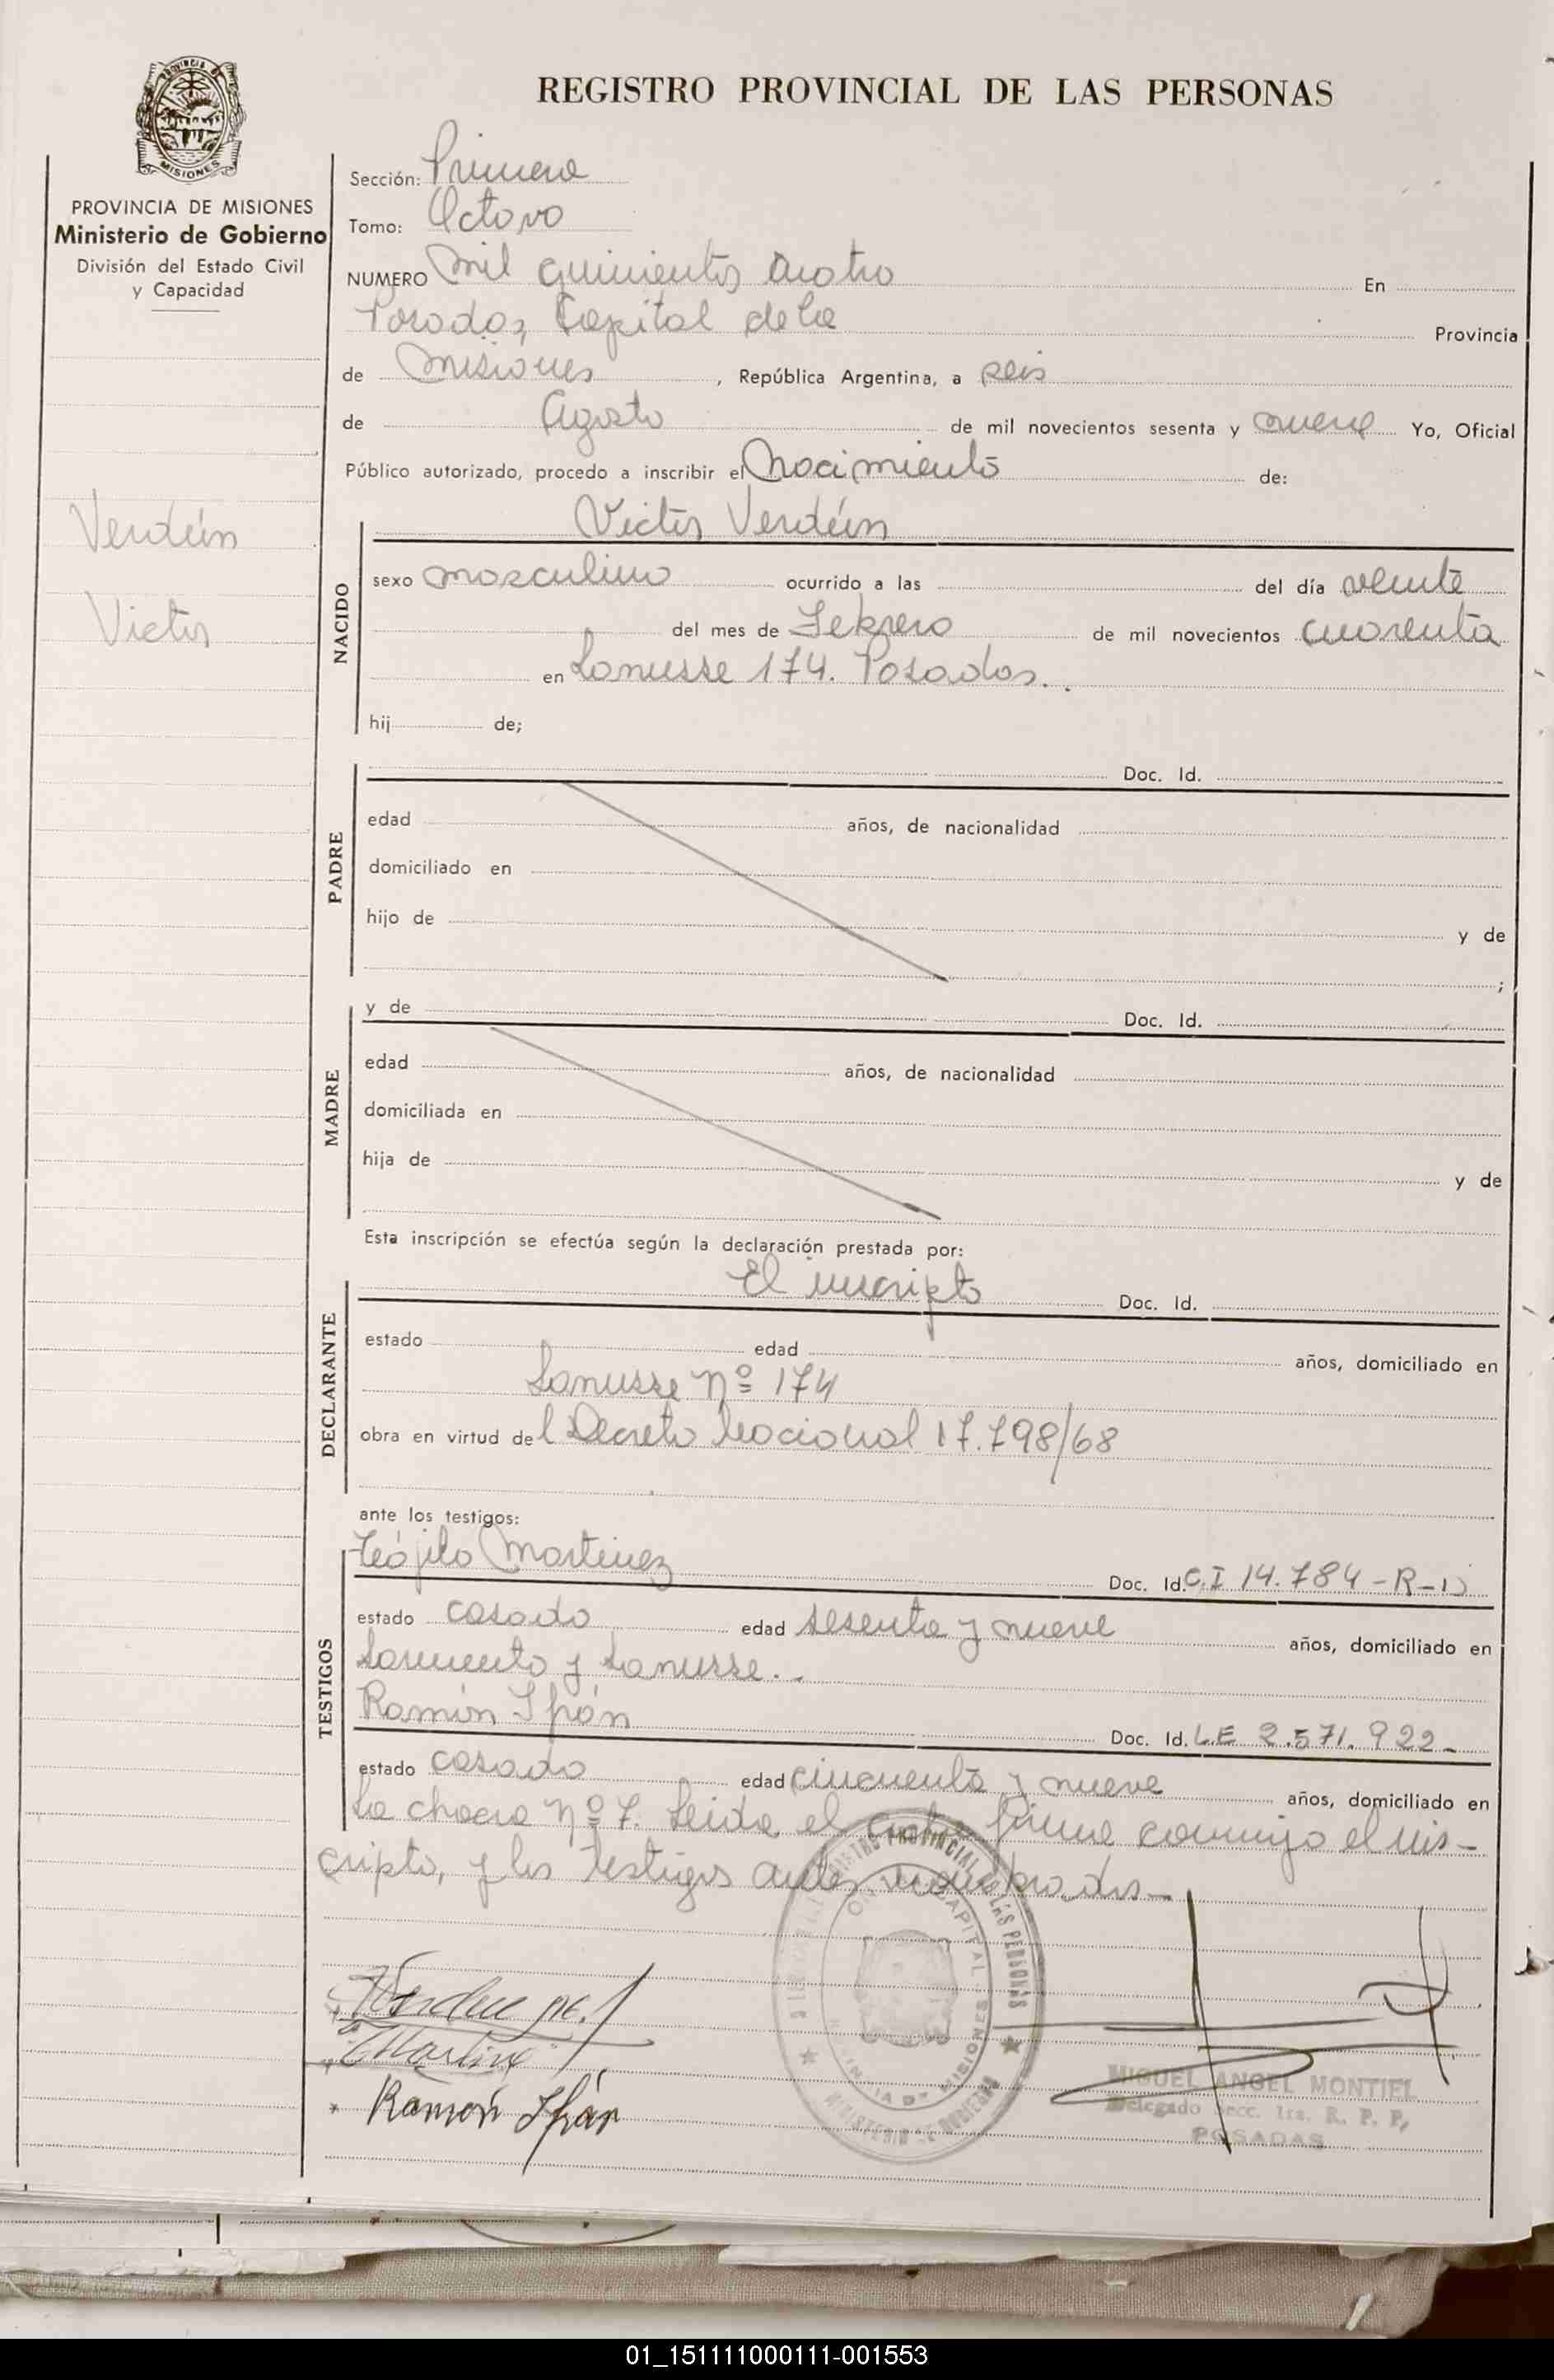 PROVINCIA DE MISIONES
Ministerio de Gobierno
División del Estado Civil
y Capacidad
Verdún
Victor
REGISTRO PROVINCIAL DE LAS PERSONAS
Sección: Primera
Tomo: Octavo
NUMERO Mil quinientos cuatro En
Posadas, Capital de la Provincia
de Misiones, República Argentina, a seis
de Agosto de mil novecientos sesenta y nueve Yo, Oficial
Público autorizado, procedo a inscribir el Nacimiento de:
Victor Verdún
NACIDO
sexo masculino ocurrido a las del día veinte
del mes de Febrero de mil novecientos cuarenta
en Lanusse 174. Posadas.
hij de;
PADRE
Doc. Id.
edad años, de nacionalidad
domiciliado en
hijo de y de
;
MADRE
y de Doc. Id.
edad años, de nacionalidad
domiciliada en
hija de y de
Esta inscripción se efectúa según la declaración prestada por:
DECLARANTE
El inscripto Doc. Id.
estado edad años, domiciliado en
Lanusse Nº 174
obra en virtud del Decreto Nacional 17.798/68
ante los testigos:
TESTIGOS
Teófilo Martinez Doc. Id. C.I 14.784-R-D
estado casado edad sesenta y nueve años, domiciliado en
Sarmiento y Lanusse.
Ramón Ifrán Doc. Id. L.E 2.571.922-
estado casado edad cincuenta y nueve años, domiciliado en
La chacra Nº 7. Leida el acta firma conmigo el ins-
cripto, y los testigos antes nombrados-
REGISTRO PROVINCIAL DE LAS PERSONAS
CAPITAL
MISIONES
MINISTERIO DE GOBIERNO
Ramón Ifrán
MIGUEL ANGEL MONTIEL
Delegado Secc. 1ra. R. P. P.
POSADAS
01_151111000111-001553